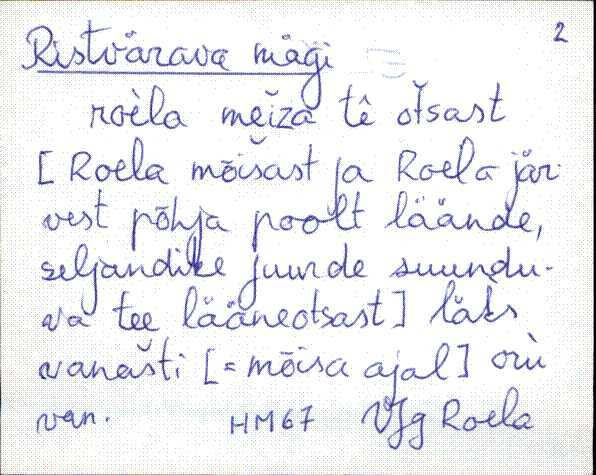 2
Ristvärava mägi
roèla meiza tê otsast
[Roela mõišast ja Roela jär-
vest põhja poolt läände,
seljandike juurde suundu-
va tee lääneotsast] läks
vanašti [= mõisa ajal] orù
van.
HM67 VJg Roela